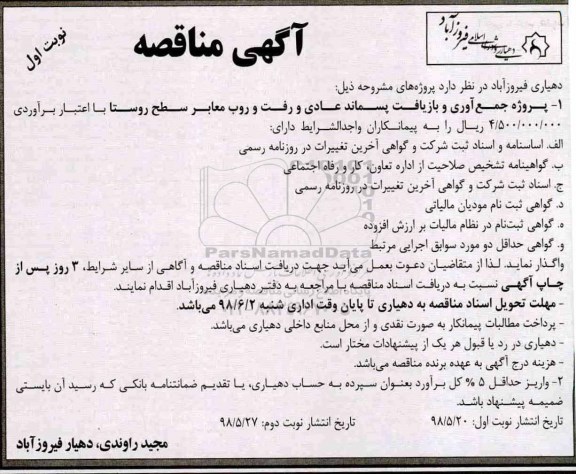 نوبت اول
آگهی مناقصه
دهیاری و شورای اسلامی فیروزآباد
دهیاری فیروزآباد در نظر دارد پروژه‌های مشروحه ذیل:
۱- پروژه جمع‌آوری و بازیافت پسماند عادی و رفت و روب معابر سطح روستا با اعتبار برآوردی
۴/۵۰۰/۰۰۰/۰۰۰ ریال را به پیمانکاران واجدالشرایط دارای:
الف. اساسنامه و اسناد ثبت شرکت و گواهی آخرین تغییرات در روزنامه رسمی
ب. گواهینامه تشخیص صلاحیت از اداره تعاون، کار و رفاه اجتماعی
ج. اسناد ثبت شرکت و گواهی آخرین تغییرات در روزنامه رسمی
د. گواهی ثبت نام مودیان مالیاتی
ه. گواهی ثبت‌نام در نظام مالیات بر ارزش افزوده
و. گواهی حداقل دو مورد سوابق اجرایی مرتبط
واگذار نماید. لذا از متقاضیان دعوت بعمل می‌آید جهت دریافت اسناد مناقصه و آگاهی از سایر شرایط، ۳ روز پس از
چاپ آگهی نسبت به دریافت اسناد مناقصه با مراجعه به دفتر دهیاری فیروزآباد اقدام نمایند.
- مهلت تحویل اسناد مناقصه به دهیاری تا پایان وقت اداری شنبه ۹۸/۶/۲ می‌باشد.
- پرداخت مطالبات پیمانکار به صورت نقدی و از محل منابع داخلی دهیاری می‌باشد.
- دهیاری در رد یا قبول هر یک از پیشنهادات مختار است.
- هزینه درج آگهی به عهده برنده مناقصه می‌باشد.
۲- واریز حداقل ۵ % کل برآورد بعنوان سپرده به حساب دهیاری، یا تقدیم ضمانتنامه بانکی که رسید آن بایستی
ضمیمه پیشنهاد باشد.
تاریخ انتشار نوبت اول: ۹۸/۵/۲۰ تاریخ انتشار نوبت دوم: ۹۸/۵/۲۷
مجید راوندی، دهیار فیروزآباد
ParsNamadData